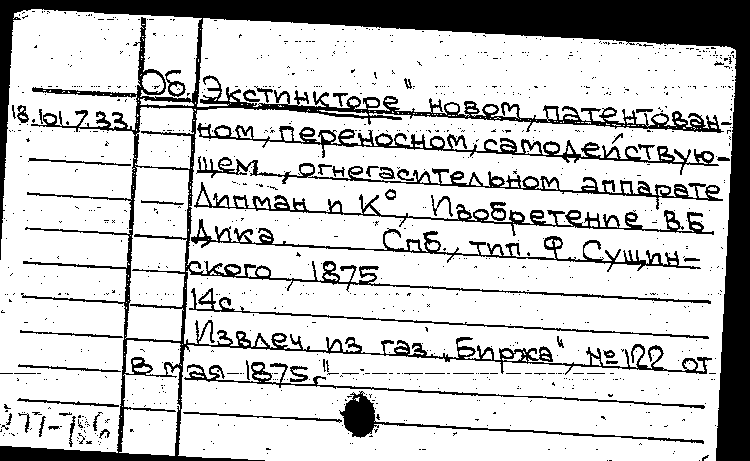 Об „Экстинкторе", новом, патентован-
18.101.7.33. ном, переносном, самодействую-
щем, огнегасительном аппарате
Липман и К°, Изобретение В.Б
Дика. Спб., тип. Ф. Сущин-
ского, 1875
14с.
„Извлеч. из газ. „Биржа", №122 от
8 мая 1875г."
277-786